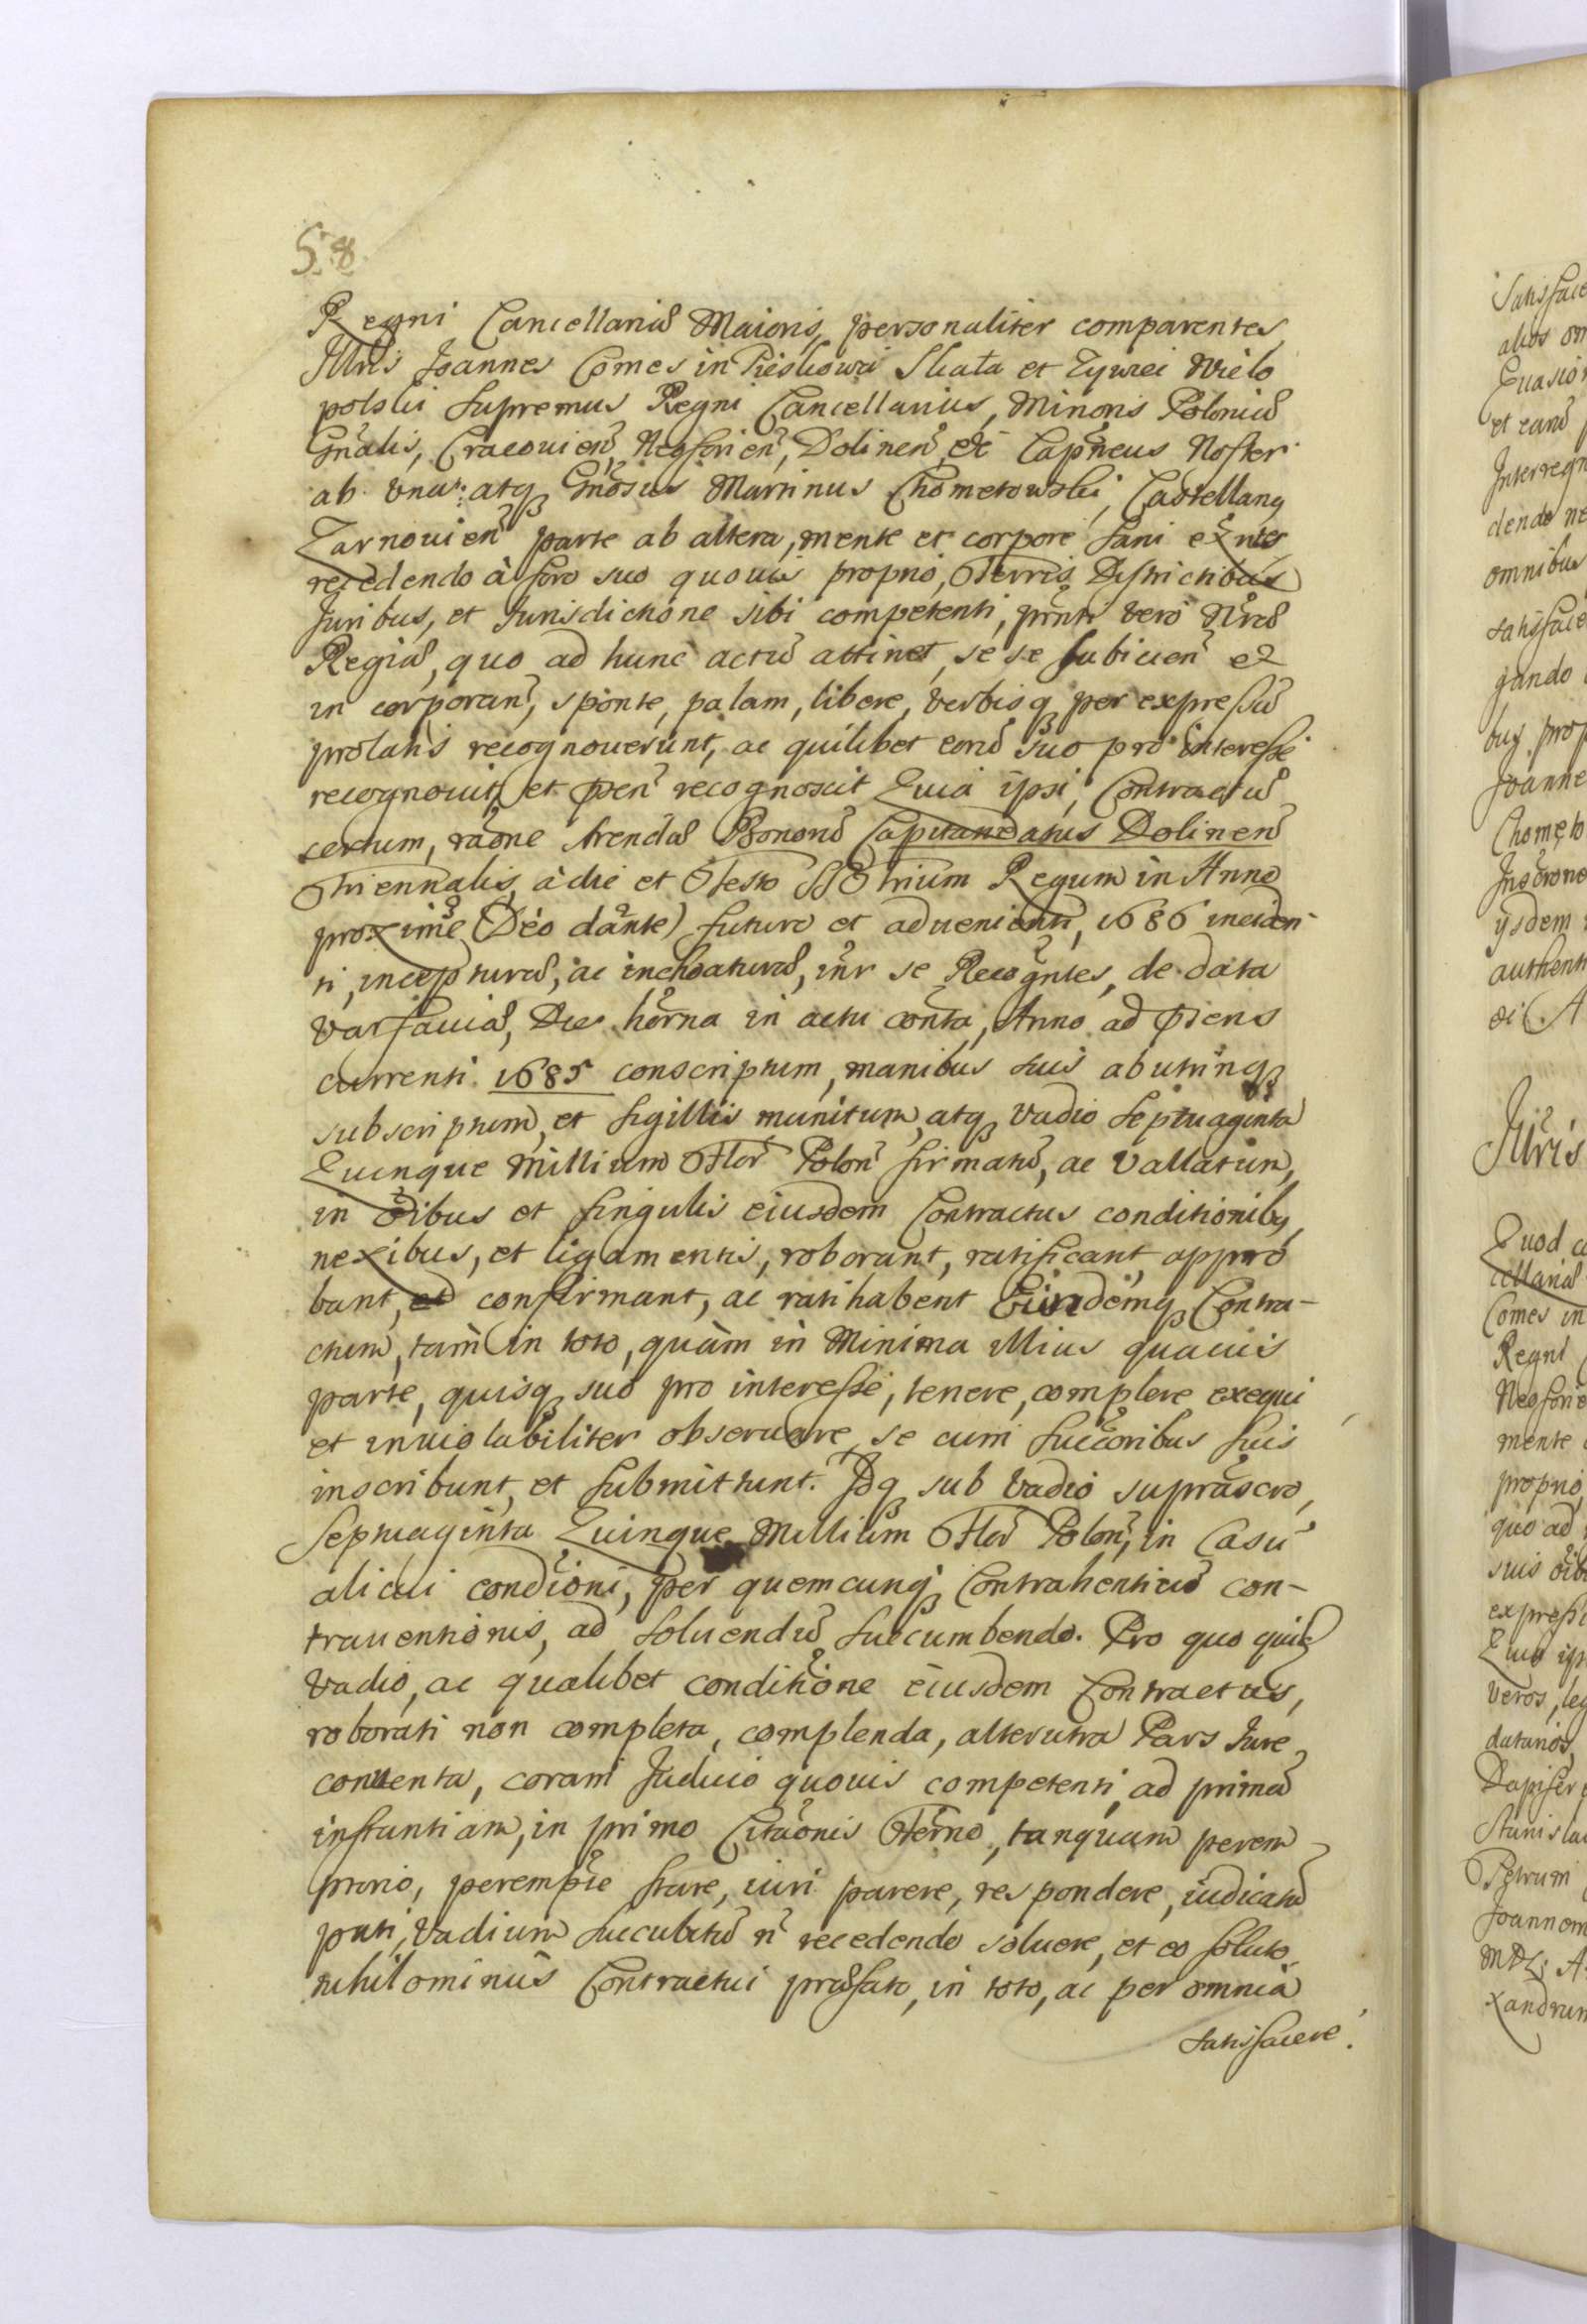 58.
Regni Cancellariæ Maioris, personaliter comparentes
Illris Joannes Comes in Pieskowa Skała et Zywiei Wielo
polski Supremus Regni Cancellarius, Minoris Poloniæ
Gnälis, Cracouien̄, Neoforien̄, Dolinen̄ etc̄ Capn̄eus Noster
ab vna: atq̢ Gnōsus Martinus Chometowski, Castellanq
Zarnouien̄ parte ab altera, mente et corpore sani ex̄ntes
recedendo à foro suo quouis proprio, Terris, Districtibus
Juribus, et Jurisdictione sibi competenti, pn̄ti vero Nr̄æ
Regiæ, quo ad hunc actū attinet, se se subiicien̄ et
in corporan̄, sponte, palam, libere, verbisq̢ per expressū
prolatis recognouerunt, ac quilibet eorū suo pro interesse
recognouit, et p̄sen̄ recognoscit Quia ipsi, Contractū
certum, raōne Arendæ Bonorū Capitaneatus Dolinen̄
Triennalis, à die et Festo SS Trium Regum in Anno
proxime (Deo dante) futuro et aduenienti, 1686 inciden-
ti, incepturæ, ac inchoaturæ, int̄r se Recogn̄tes, de data
Varsauiæ, Die hōrna in actu contn̄ta, Anno ad p̄sens
currenti 1685 conscriptum, manibus suis ab utrinq̢
subscriptum, et sigillis munitum, atq̢ vadio Septuaginta
Quinque Millium Flor̄ Polon̄ firmatū, ac vallatum,
in ōibus et singulis eiusdem Contractus conditionibq,
nexibus, et ligamentis, roborant, ratificant, appro
bant, et confirmant, ac ratihabent Eundemq̢ Contra-
ctum, tam in toto, quàm in Minima illius quauis
parte, quisq̢ suo pro interesse, tenere, complere exequi
et inuiolabiliter obseruare, se cum succ̄oribus suis
inscribunt, et submittunt. Idq̢ sub vadio suprascr̄o,
Septuaginta Quinque Millium Flor̄ Polon̄, in Casu
alicui condiōni, per quemcunq̢ Contrahentiū con-
trauentionis, ad soluendū succumbendo. Pro quo quid̄
Vadio, ac qualibet conditiōne eiusdem Contractus,
roborati non completa, complenda, alterutra Pars Jure
conuenta, coram Judicio quouis competenti, ad primā
instantiam, in primo Citaōnis Term̄o, tanquam perem
ptorio, perempt̄ie stare, iuri parere, respondere, iudicatū
pati, Vadium succubitū n̄ recedendo soluere, et eo soluto
nihilominùs Contractui præfato, in toto, ac per omnia
satisfacere.